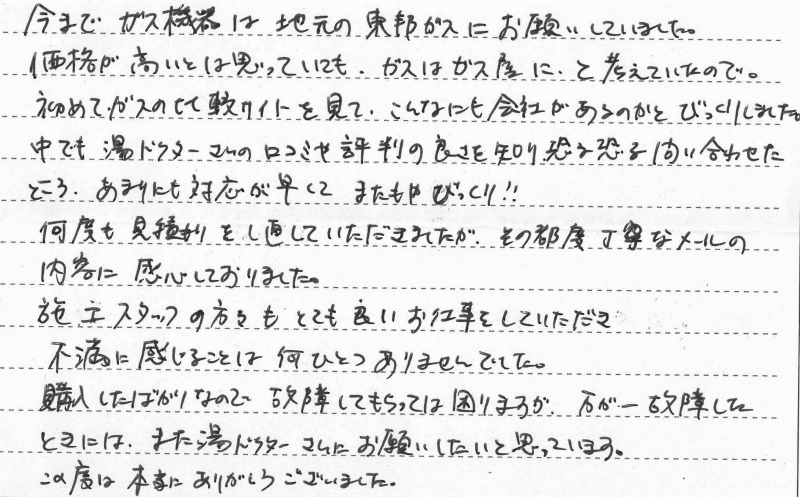 今まで ガス機器は 地元の 東邦ガスに お願いしていました。
価格が 高いとは思っていても、ガスはガス屋に、と考えていたので。
初めてガスの比較サイトを見て、こんなにも会社があるのかと びっくりしました。
中でも 湯ドクターさんの口コミや評判の良さを知り恐る恐る問い合わせた
ところ、あまりにも対応が早くて またもやびっくり!!
何度も見積りをし直していただきましたが、その都度丁寧なメールの
内容に 感心しておりました。
施工スタッフの方々も とても良いお仕事をしていただき
不満に感じることは 何ひとつありませんでした。
購入したばかりなので 故障してもらっては困りますが、万が一故障した
ときには、また湯ドクターさんにお願いしたいと思っています。
この度は 本当に ありがとう ございました。